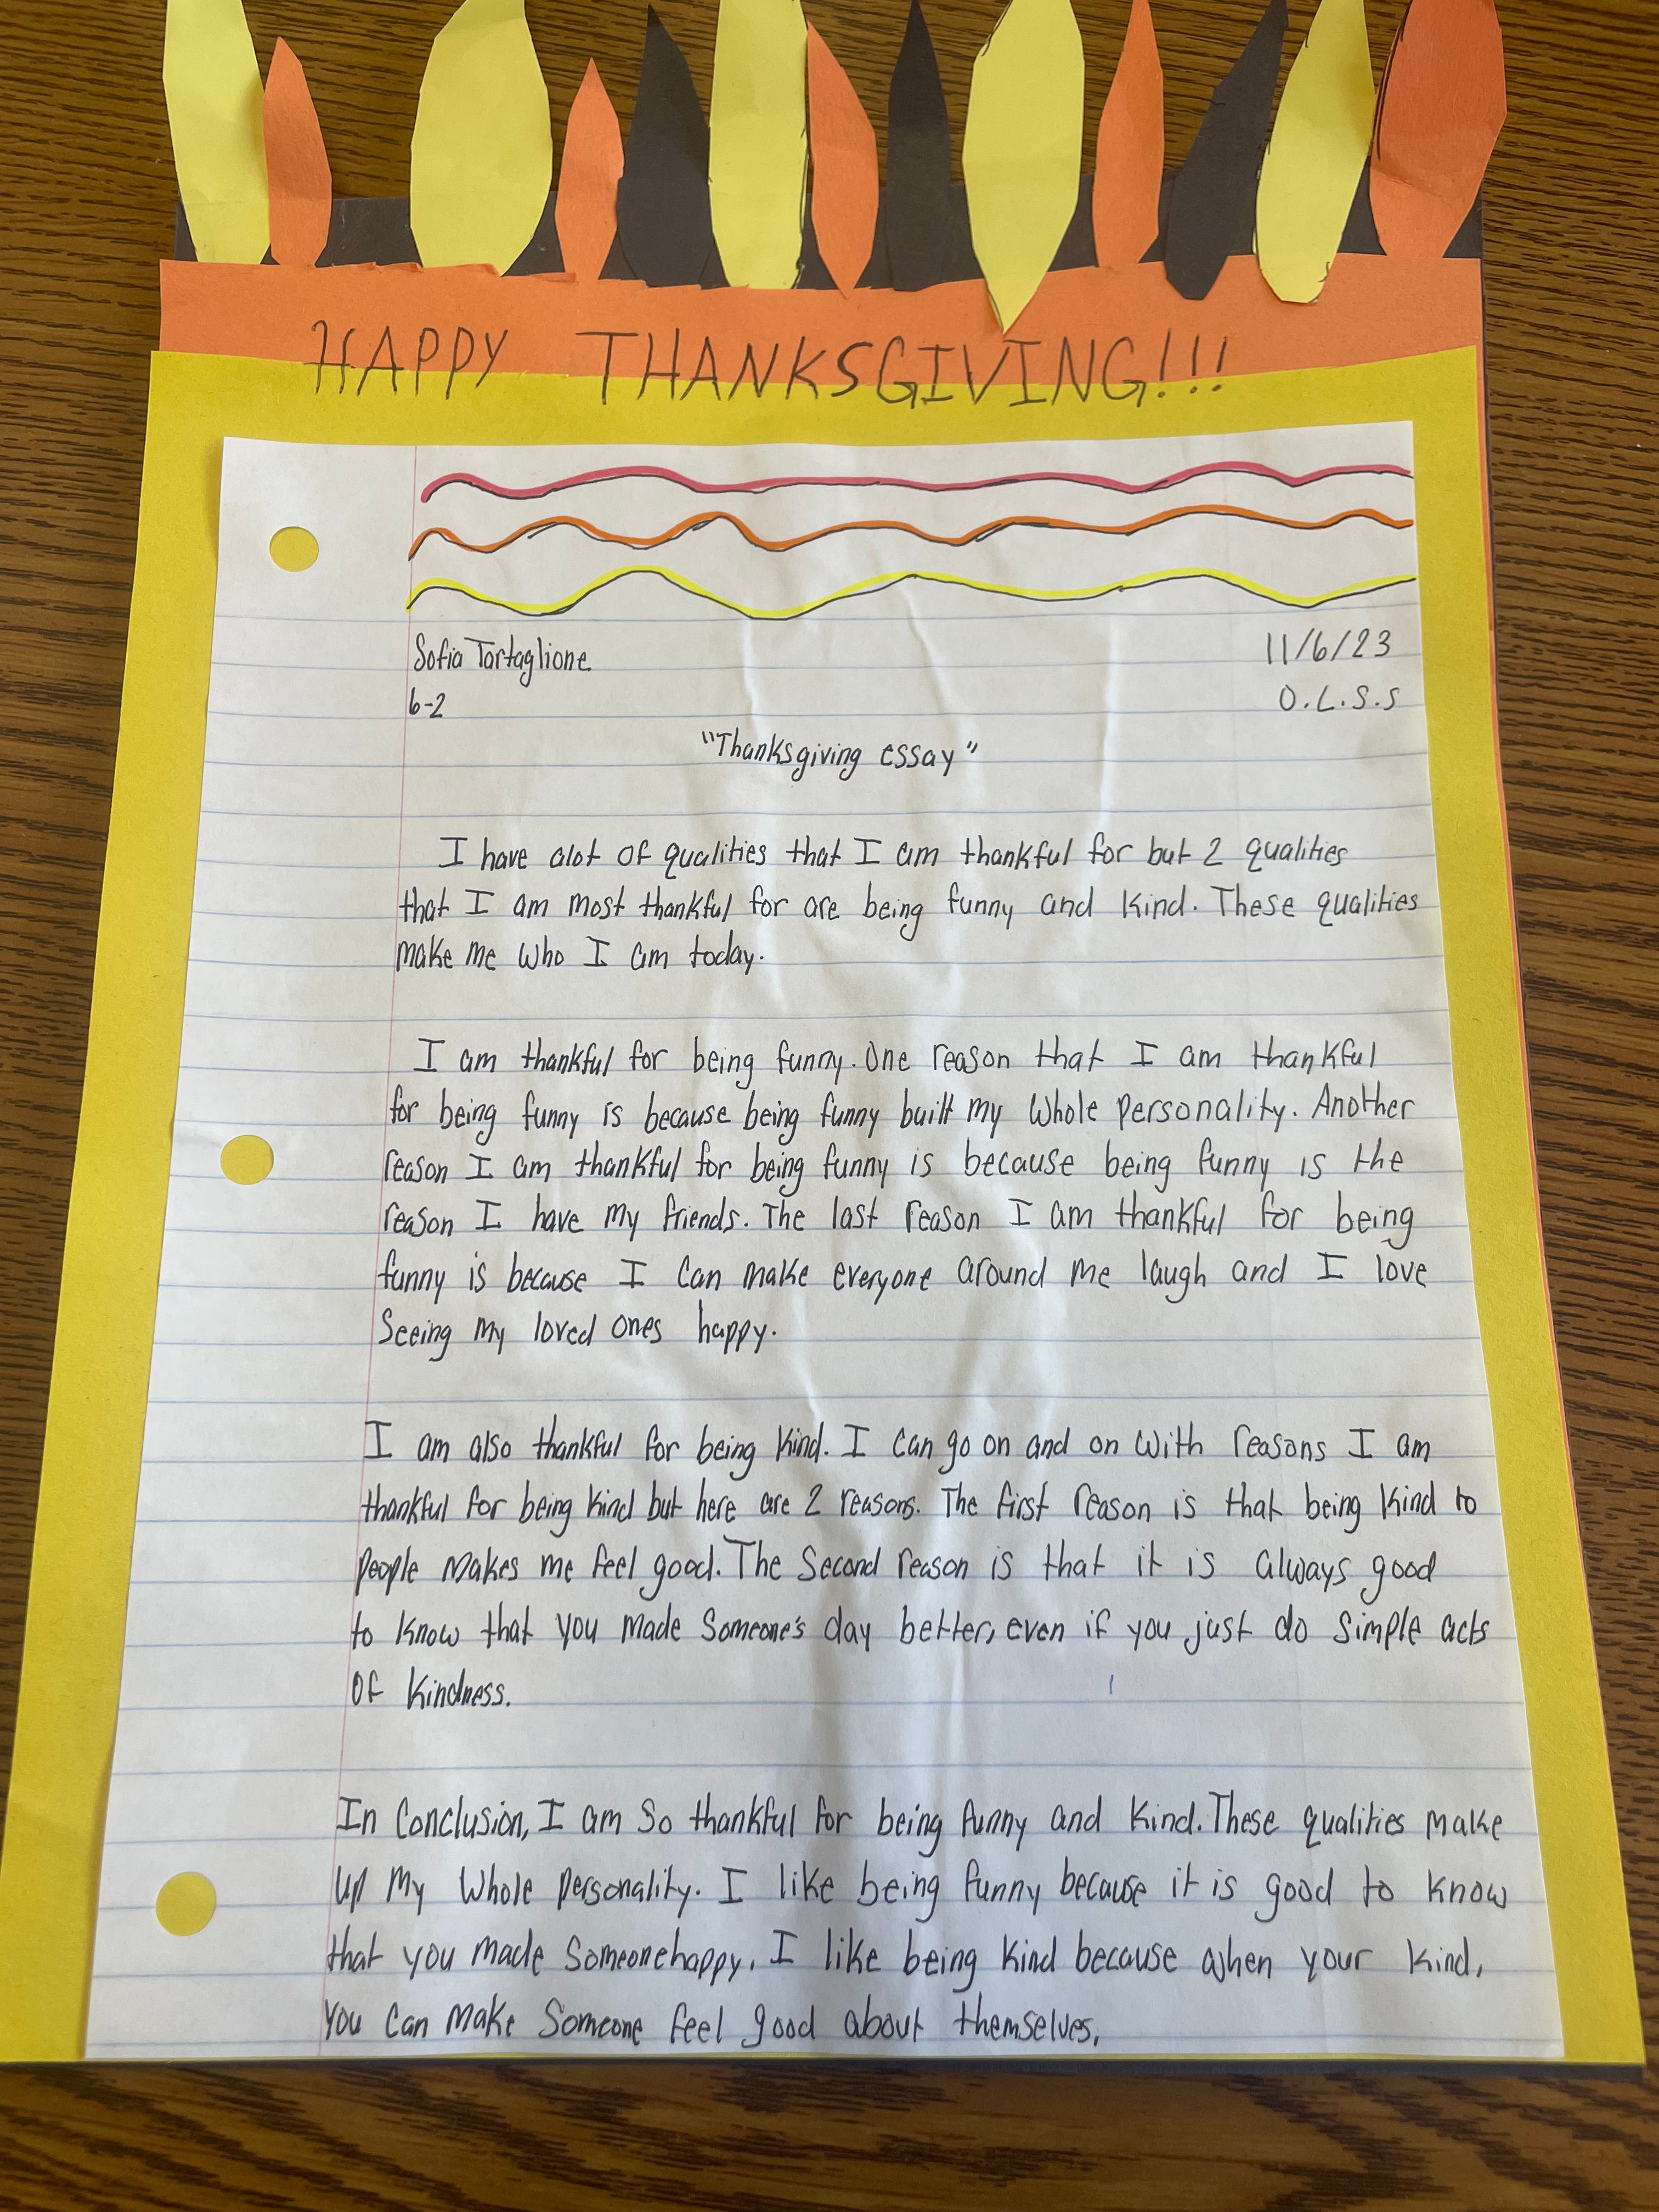 HAPPY THANKSGIVING!!!
Sofia Tartaglione 11/6/23
6-2 O.L.S.S
"Thanksgiving essay"
I have alot of qualities that I am thankful for but 2 qualities
that I am most thankful for are being funny and kind. These qualities
make me who I am today.
I am thankful for being funny. One reason that I am thankful
for being funny is because being funny built my whole personality. Another
reason I am thankful for being funny is because being funny is the
reason I have my friends. The last reason I am thankful for being
funny is because I can make everyone around me laugh and I love
seeing my loved ones happy.
I am also thankful for being kind. I can go on and on with reasons I am
thankful for being kind but here are 2 reasons. The first reason is that being kind to
people makes me feel good. The second reason is that it is always good
to know that you made someone's day better, even if you just do simple acts
of kindness.
In conclusion, I am so thankful for being funny and kind. These qualities make
up my whole personality. I like being funny because it is good to know
that you made someone happy. I like being kind because when your kind,
you can make someone feel good about themselves.